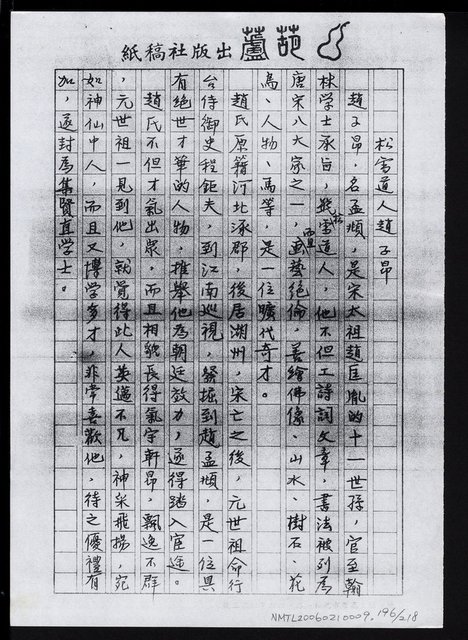 葫蘆出版社稿紙
松雪道人趙子昂
趙子昂，名孟頫，是宋太祖趙匡胤的十一世孫，官至翰
林學士承旨，號松雪道人，他不但工詩詞文章，書法被列為
唐宋八大家之一，畫藝絕倫，善繪佛像、山水、樹石、花
鳥、人物、馬等，是一位曠代奇才。
趙氏原籍河北涿郡，後居湖州，宋亡之後，元世祖命行
台侍御史程鉅夫，到江南巡視，發掘到趙孟頫，是一位具
有絕世才華的人物，推舉他為朝廷效力，遂得踏入宦途。
趙氏不但才氣出眾，而且相貌長得氣宇軒昂，飄逸不群
，元世祖一見到他，就覺得此人英邁不凡，神采飛揚，宛
如神仙中人，而且又博學多才，非常喜歡他，待之優禮有
加，遂封為集賢直学士。
NMTL20060210009. 196/218